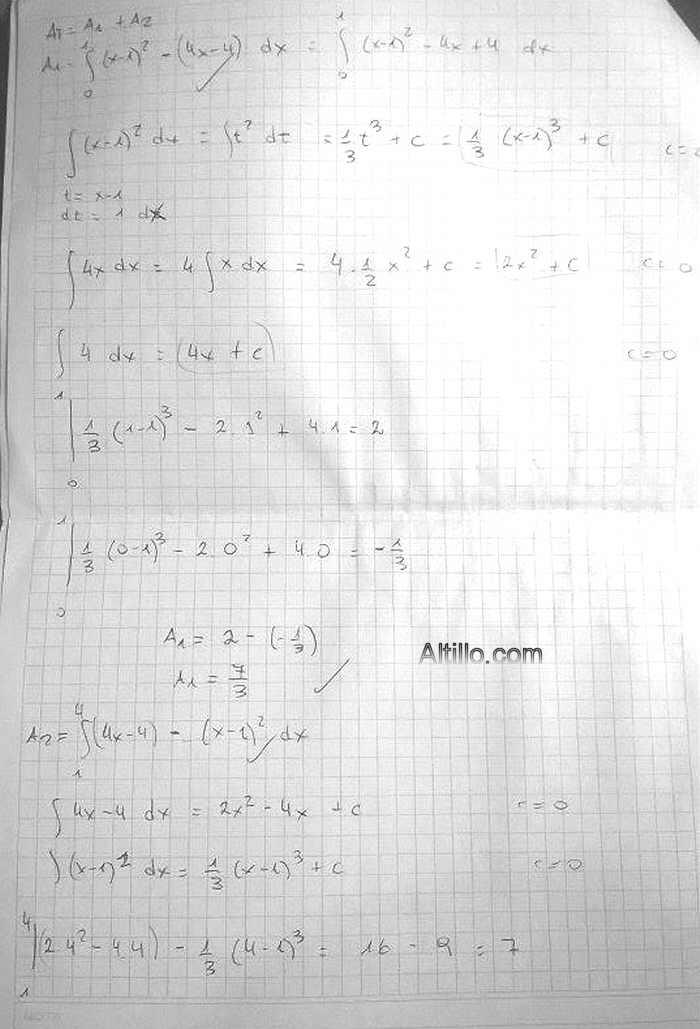 AT = A1 + A2
A1 = ∫₀¹ (x-1)² - (4x-4) dx = ∫₀¹ (x-1)² - 4x + 4 dx
∫ (x-1)² dx = ∫ t² dt = 1/3 t³ + c = 1/3 (x-1)³ + c
t = x-1
dt = 1 dx
∫ 4x dx = 4 ∫ x dx = 4 . 1/2 x² + c = 2x² + c c = 0
∫ 4 dx = 4x + c c = 0
|₀¹ 1/3 (1-1)³ - 2.1² + 4.1 = 2
|₀¹ 1/3 (0-1)³ - 2.0² + 4.0 = -1/3
A1 = 2 - (-1/3)
Altillo.com
A1 = 7/3 ✓
A2 = ∫₁⁴ (4x-4) - (x-1)² dx
∫ 4x-4 dx = 2x² - 4x + c c = 0
∫ (x-1)² dx = 1/3 (x-1)³ + c c = 0
|₁⁴ (2.4² - 4.4) - 1/3 (4-1)³ = 16 - 9 = 7